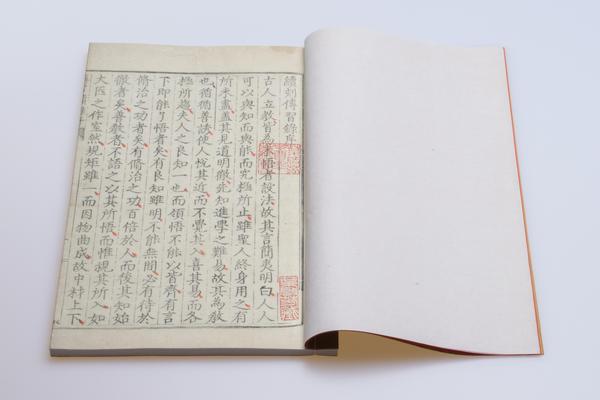 續刻傳習錄序
古人立教皆為未悟者設法故其言簡夷明白人人
可以與知而與能而究極所止雖聖人終身用之有
所未盡蓋其見道明徹先知進學之難易故其為教
也循循善誘使人悅其近而不覺其入喜其易而各
極所趨夫人之良知一也而領悟不能以皆齊有言
下即能了悟者矣有良知雖明不能無間必有待於
脩治之功者矣有脩治之功百倍於人而後其知始
徹者矣善教者不語之以其所悟而惟視其所入如
大匠之作室然規矩雖一而因物曲成故中材上下